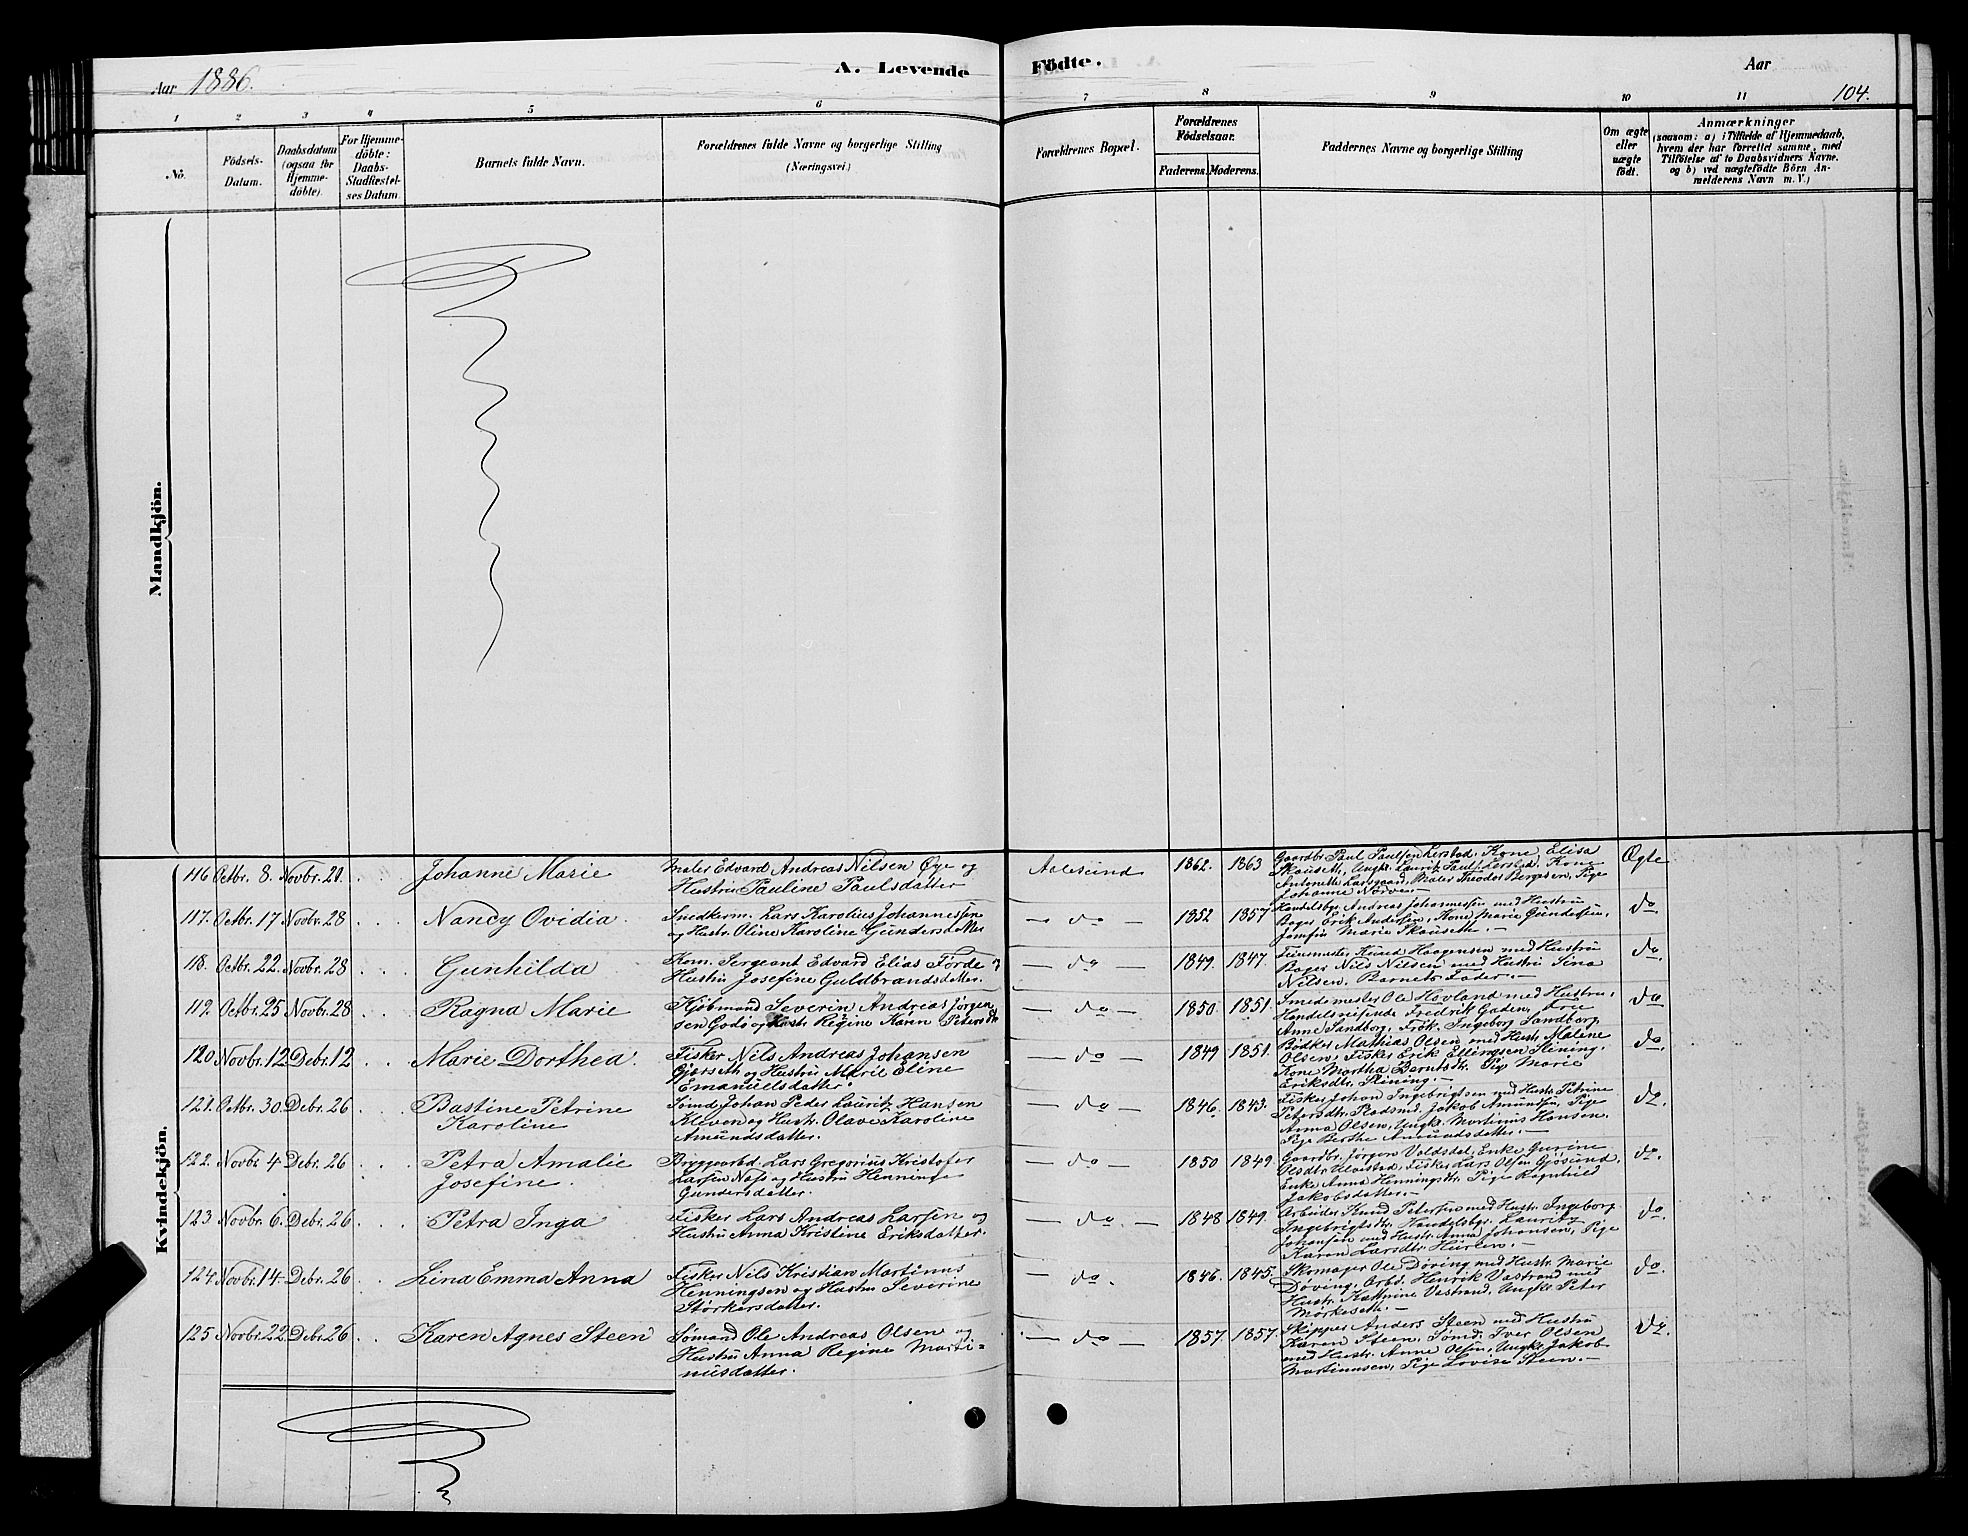 Aar 1886.
A. Levende
Födte.
Aar
104.
1 2 3 4 5 6 7 8 9 10 11
No.
Födsels-
Datum.
Daabsdatum
(ogsaa for
Hjemme-
döbte).
For Hjemme-
döbte:
Daabs-
Stadfæstel-
ses Datum.
Barnets fulde Navn.
Forældrenes fulde Navne og borgerlige Stilling
(Næringsvei.)
Forældrenes Bopæl.
Forældrenes
Födselsaar.
Faderens. Moderens.
Faddernes Navne og borgerlige Stilling
Om ægte
eller
uægte
födt.
Anmærkninger
(saasom: a) i Tilfælde af Hjemmedaab,
hvem der har forrettet samme, med
Tilföielse af to Daabsvidners Navne,
og b) ved uægtefödte Börn An-
melderens Navn m. V.)
Mandkjön.
Kvindekjön.
116 Octbr. 8. Novbr. 21. Johanne Marie
Maler Edvard Andreas Nilsen Øye og
Hustru Pauline Paulsdatter
Aalesund 1862. 1863
Gaardbr. Paul Paulsen Lerstad, Kone Elisa
Skouseth, Ungk. Laurit Pauls. Lerstad, Kone
Antonette Larsgaard, Maler Theodor Bergesen, Pige
Johanne Nørve.—
Ægte
117. Octbr. 17 Novbr. 28 Nancy Ovidia.
Snedkerm. Lars Karolius Johannessen
og Hustr. Oline Karoline Gundersdatter
— do — 1852 1857
Handelsbgr. Andreas Johannessen med Hustru
Bager Erik Andersen, Kone Marie Gundersen,
Jomfru Marie Skouseth.—
do.
118. Octbr. 22. Novbr. 28 Gunhilda
Kom. Sergeant Edvard Elias Förde og
Hustru Josefine Guldbrandsdatter.
— do — 1849. 1847.
Knud Haagensen med Hustru
Bager Nils Nilsen med Hustru Sina
Nilsen, Barnets Fader.—
do.
119. Octbr. 25 Novbr. 28 Ragna Marie
Kjöbmand Severin Andreas Jörgen
sen Godö og Hustr. Regine Karen Petersdtr.
— do — 1850. 1851.
Smedemester Ole Hovland med Hustru,
Handelsreisende Fredrik Gaden, Frk.
Anne Sandborg, Frök. Ingeborg Sandborg
do
120 Novbr. 12 Debr. 12 Marie Dorthea.
Fisker Nils Andreas Johansen
Gjærseth og Hustru Marie Eline
Emanuelsdatter.
— do — 1849 1851.
Bödker Mathias Olsen med Hustr. Malene
Olsen, Fisker Erik Ellingsen Slining,
Kone Martha Berntsdtr. Pige Marie
Eriksdtr. Slining.—
do.
121. Octbr. 30. Debr. 26 Bastine Petrine
Karoline
Sömd. Johan Peder Lauritz Hansen
Kleven og Hustr. Olave Karoline
Amundsdatter.
— do — 1846. 1843.
Fisker Johan Ingebrigtsen med Hustr. Petrine
Petersdtr. Jakob Amundsen, Pige
Anna Olsen, Ungk. Martinus Hansen,
Pige Berthe Amundsdatter.—
do.
122. Novbr. 4 Debr. 26 Petra Amalie
Josefine.
Bryggearbd. Lars Gregorius Kristofer
Larsen Næss og Hustru Henninge
Gundersdatter.
— do — 1850 1849.
Gaardbr. Jörgen Voldsdal, Enke Gurine
Olsdtr. Fisker Lars Olsen Gjösund,
Enke Anna Henningsdtr. Pige Ragnhild
Jakobsdatter.—
do.
123. Novbr. 6. Debr. 26 Petra Inga
Fisker Lars Andreas Larsen og
Hustru Anna Kristine Eriksdatter.
— do. — 1848 1849.
Arbeider Knud Petersen med Hustr. Ingeborg
Ingebrigtsdtr. Handelsbgr. Lauritz
Johansen med Hustr. Anna Johansen, Pige
Karen Larsdtr. Hurlen.—
do.
124. Novbr. 14 Debr. 26 Lina Emma Anna
Fisker Nils Kristian Martinus
Henningsen og Hustru Severine
Störkersdatter.
— do. 1846. 1845.
Skomager Ole Döving med Hustr. Marie
Döving, Arbd. Henrik Vastrand med
Hustr. Kathrine Vastrand, Ungke Peter
Mörkeseth.—
do.
125 Novbr. 22 Debr. 26 Karen Agnes Steen
Sömand Ole Andreas Olsen og
Hustru Anna Regine Marti-
nusdatter.
— do — 1857. 1857.
Skipper Anders Steen med Hustru
Karen Steen, Sömd. Iver Olsen
med Hustr. Anne Olsen, Ungke Jakob
Martinusen, Pige Lovise Steen.—
do.